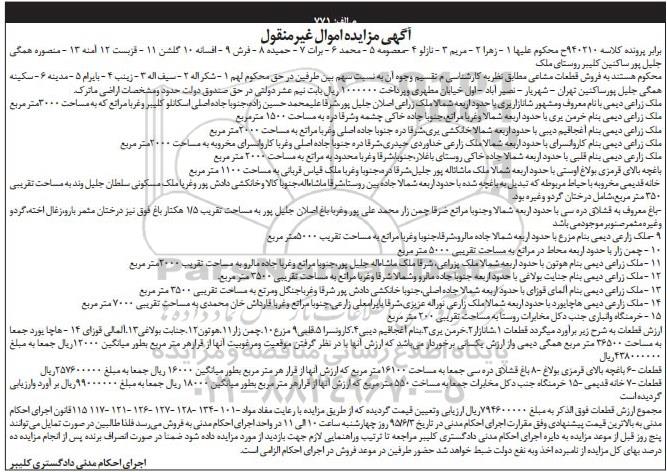 م الف: ۷۷۱
آگهی مزایده اموال غیرمنقول
برابر پرونده کلاسه ۹۴۰۲۱۰ح محکوم علیها ۱ - زهرا ۲ - مریم ۳ - نازلو ۴ -معصومه ۵ - محمد ۶ - برات ۷ - حمیده ۸ - فرش ۹ - افسانه ۱۰ گلشن ۱۱ - قزبست ۱۲ آمنه ۱۳ - منصوره همگی
جلیل پور ساکنین کلیبر روستای ملک
محکوم هستند به فروش قطعات مشاعی مطابق نظریه کارشناسی و تقسیم وجوه آن به نسبت سهم بین طرفین در حق محکوم لهم ۱ - شکر اله ۲ - سیف اله ۳ - زینب ۴ - بایرام ۵ - مدینه ۶ - سکینه
همگی جلیل پورساکنین تهران - شهریار - نصیر آباد - اول خیابان مطهری وپرداخت ۱۰۰۰۰۰۰ ریال بابت نیم عشر دولتی در حق صندوق دولت حدود ومشخصات اراضی ماترک.
ملک زراعی دیمی با نام معروف ومشهور شانازاریری با حدود اربعه شمالا ملک زراعی اصلان جلیل پور،شرقا علیمحمد حسین زاده،جنوبا جاده اصلی اسکانلو کلیبر وغربا مراتع که به مساحت ۳۰۰۰متر مربع
ملک زراعی دیمی بنام خرمن یری با حدود اربعه شمالا وغربا مراتع،جنوبا جاده خاکی چشمه وشرقا دره به مساحت ۱۵۰۰ مترمربع
ملک زراعی دیمی بنام آغجاقیم دیبی با حدود اربعه شمالا خانکشی یری،شرقا دره جنوبا جاده اصلی وغربا مراتع به مساحت ۲۰۰۰متر مربع
ملک زراعی دیمی بنام کاروانسرای با حدود اربعه شمالا ملک زارعی خداوردی حیدری،شرقا دره جنوبا جاده اصلی وغربا کاروانسرای مخروبه به مساحت ۲۰۰۰متر مربع
ملک زراعی دیمی بنام قلبی با حدود اربعه شمالا جاده خاکی روستای باغلار،جنوبا،شرقا وغربا محدود به مراتع به مساحت ۲۰۰۰ متر مربع
باغچه بالای قرمزی بولاغ اوستی با حدود اربعه شمالا ملک ماشااله پور جلیل،شرقا دره،جنوبا دره وغربا ملک قیاس قربانی به مساحت ۱۱۰۰ متر مربع
خانه قدیمی مخروبه با حیاط مربوطه که تبدیل به باغچه شده با حدود اربعه شمالا جاده بین روستا،شرقا ماشااله،جنوبا کالا وخانکشی دادش پور وغربا ملک مسکونی سلطان جلیل وند به مساحت تقریبی
۳۵۰ متر مربع،شامل درختان گردو وغیره بود.
-باغ معروف به قشلاق دره سی با حدود اربعه شمالا وجنوبا مراتع ضرقا چمن زار محمد علی پور وغربا باغ اصلان جلیل پور به مساحت تقریب ۱/۵ هکتار باغ فوق نیز درختان مثمر بارورزغال اخته،گردو
وغیره مثمرصنوبر موجود می باشد
۹ -ملک زارعی دیمی بنام مزرع با حدود اربعه شمالا جاده مالرو وشرقا،جنوبا وغربا مراتع به مساحت تقریب ۵۰۰۰متر مربع
۱۰ - چمن زار با حدود اربعه محاط در مراتع به مساحت تقریبی ۵۰۰۰ متر مربع
۱۱ -ملک زراعی دیمی بنام هوتون با حدود اربعه شمالا ملک پزراعی،شرقا ملک ماشااله جلیل پور،جنوبا مراتع وغربا جاده مالرو به مساحت تقریب ۲۰۰۰متر مربع
۱۲ -ملک زراعی دیمی بنام جنایت بولاغی با حدود اربعه جنوبا جاده مالرو وشمالا شرقا وغربا مراتع به مساحت تقریبی ۳۵۰۰ متر مربع.
۱۳ -ملک زراعی دیمی بنام آلمای قوزای با حدود اربعه شمالا جاده اصلی،جنوبا خانکشی دادش پور شرقا وغرباجنگل ومرتع به مساحت تقریبی ۳۵۰۰ متر مربع
۱۴ - ملک زراعی دیمی هاچاپورد با حدود اربعه شمالا ملک زارعی نوراله عزیزی،شرقا بایرامعلی زارعی،جنوبا مراتع وغربا قارداش خان محمدی به مساحت تقریبی ۷۰۰۰ متر مربع
۱۵ - خرمنگاه وانباری جنب دکل مخابرات روستا به مساحت تقریبی ۲۰۰ متر مربع
ارزش قطعات به شرح زیر بر آورد میگردد قطعات ۱.شانازار۲.خرمن یری۳.بنام آغجاقیم دیبی۴.کاروانسرا ۵.قلبی۹ مزرع۱۰.چمن زار۱۱.هوتون۱۲.جنایت بولاغی۱۳.آلمالی قوزای ۱۴ - هاچا پورد جمعا
به مساحت ۳۶۵۰۰ متر مربع همگی دیمی واز ارزش یکسانی برخوردار می باشد که ارزش آنها با در نظر گرفتن موقعیت ومرغوبیت آنها از قرار هر متر مربع بطور میانگین ۱۲۰۰۰ریال جمعا به مبلغ
۴۳۸۰۰۰۰۰۰ریال
قطعات -۶ باغچه بالای قرمزی بولاغ -۸ باغ قشلاق دره سی جمعا به مساحت ۱۶۱۰۰متر مربع که ارزش آنها از قرار هر متر مربع بطور میانگین ۱۶۰۰۰ ریال جمعا به مبلغ ۲۵۷۶۰۰۰۰۰ریال
قطعات -۷ خانه قدیمی -۱۵ خرمنگاه جنب دکل مخابرات جمعا به مساحت ۵۵۰ متر مربع که ارزش آنها از قرار هر متر مربع بطور میانگین ۱۸۰۰۰۰ ریال جمعا به مبلغ ۹۹۰۰۰۰۰۰ریال بر آورد وارزیابی
گردیده است
مجموع ارزش قطعات فوق الذکر به مبلغ ۷۹۴۶۰۰۰۰۰ریال ارزیابی وتعیین قیمت گردیده که از طریق مزایده با رعایت مفاد مواد -۱۰۱ -۱۳۴ -۱۲۸ -۱۲۷ -۱۲۶ -۱۲۱ -۱۱۷ ۱۱۵قانون اجرای احکام
مدنی به بالاترین قیمت پیشنهادی وفق مقررات اجرای احکام مدنی در تاریخ ۹۵/۶/۳ روز چهارشنبه ساعت ۱۰ الی ۱۱ در واحد اجرای احکام مدنی به فروش می رسد فلذا طالبین در صورت تمایل می توانند
پنج روز قبل از موعد مزایده به دایره اجرای احکام مدنی دادگستری کلیبر مراجعه تا ترتیب وراهنمایی لازم جهت بازدید از مورد مزایده داده شود ضمنا در صورت انصراف برنده پس از انجام مزایده ده
درصد بهای کل مزایده از نامبرده اخذ وبه نفع دولت ضبط خواهد شد حضور طرفین در موعد فروش در اجرای احکام الزامی است.
اجرای احکام مدنی دادگستری کلیبر
۰۲۱-۸۸۳۴۹۶۷۰-۵